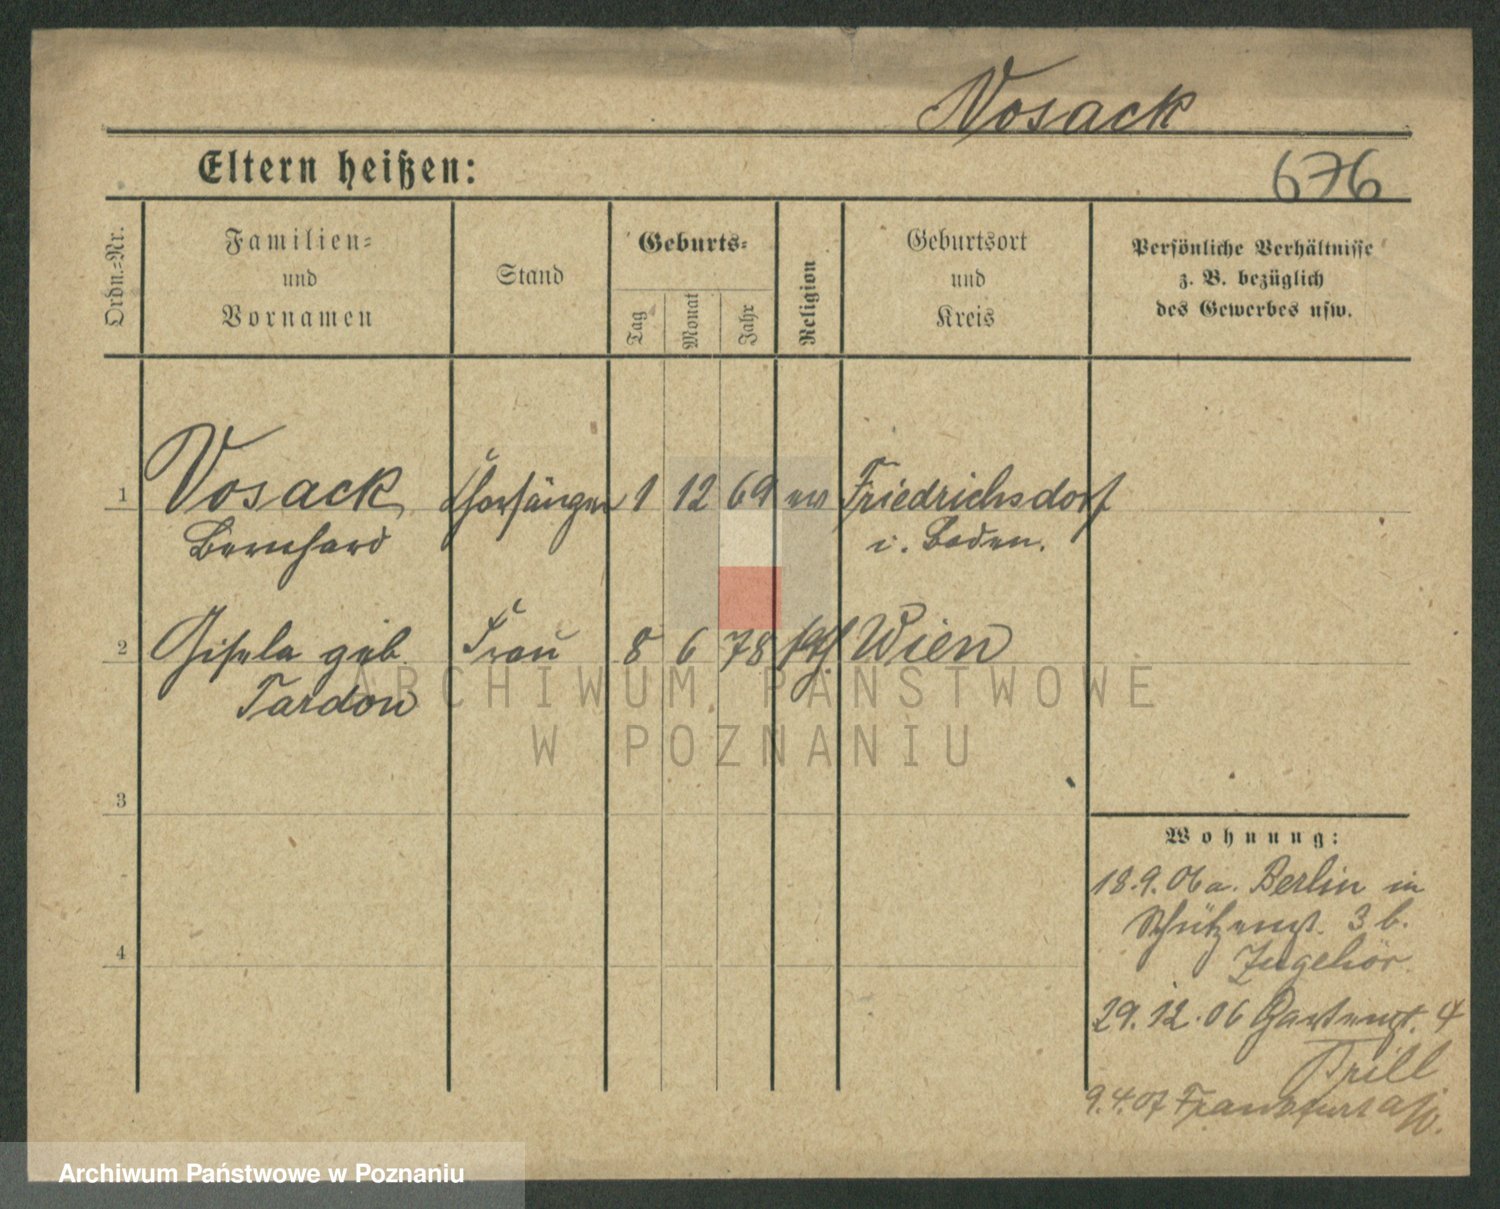 Vosack
Eltern heißen:
676
Ordn.-Nr.
Familien-
und
Vornamen
Stand
Geburts-
Tag
Monat
Jahr
Religion
Geburtsort
und
Kreis
Persönliche Verhältnisse
z. B. bezüglich
des Gewerbes usw.
1 Vosack Chorsänger 1 12 69 ev Friedrichsdorf
Bernhard i. Baden.
2 Gisela geb. Frau 8 6 78 kth Wien
Tardon
3
4
Wohnung:
18.9.06 a. Berlin in
Schützenst. 3 b.
Zugehör
29.12.06 Gartenst. 4
Prill
9.4.07 Frankfurt a/O.
ARCHIWUM PAŃSTWOWE
W POZNANIU
Archiwum Państwowe w Poznaniu